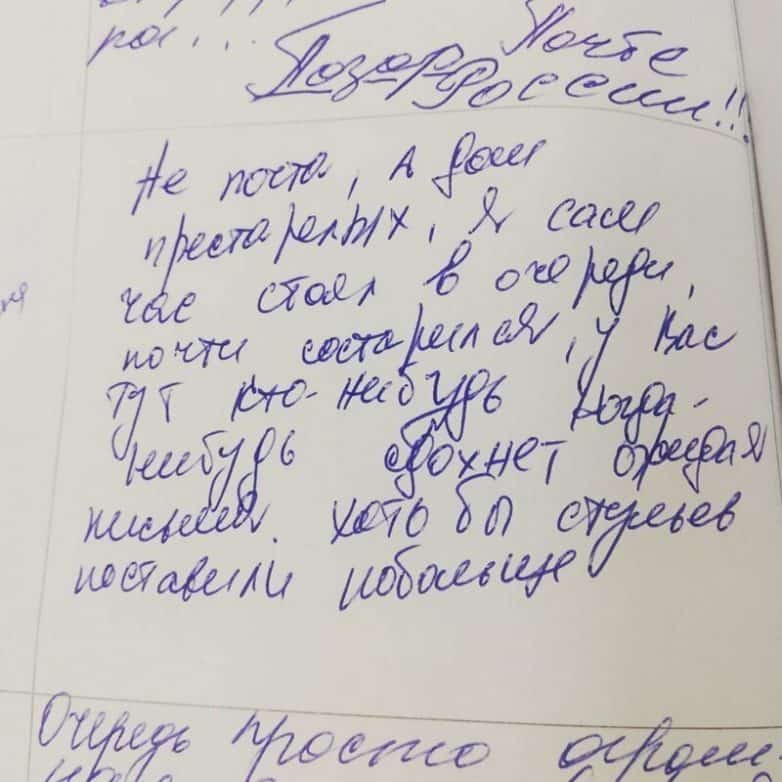 рос...
Позор Почте
России!!!
Не почта, а дом
престарелых, я сам
час стоял в очереди,
почти состарился, у Вас
тут кто-нибудь когда-
нибудь сдохнет ожидая
письма. Хоть бы стульев
поставили побольше
Очередь просто огром